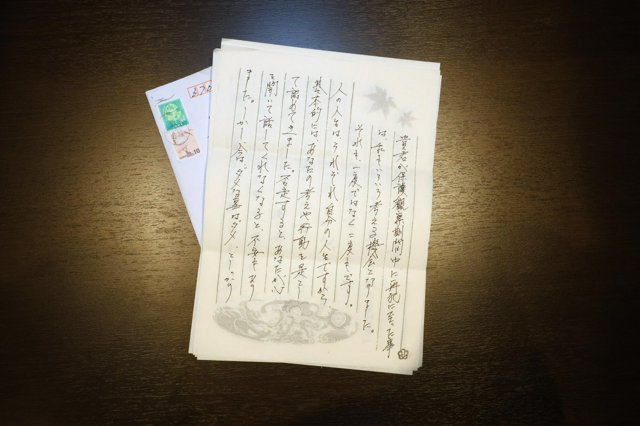 貴君が保護観察期間中に再犯に至った事
は、私もいろいろ考える機会となりました。
それも、一度ではなく二度もです。
人の人生はそれぞれ自分の人生ですから
基本的にはあなたの考えや行動を是とし
て認めてきました。否定すると、あなたが心
を開いて話してくれなくなると、不安もあり
ました。しかし今は、ダメな事はダメ、としっかり